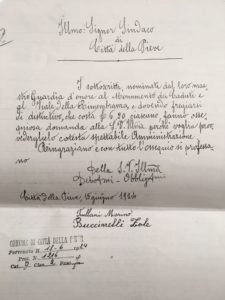 Illmo: Signor Sindaco
di
Città della Pieve
I sottoscritti, nominati dal loro mae
stro Guardia d'onore al Monumento dei Caduti e
al Viale della Rimembranza, e dovendo fregiarsi
di distintivo, che costa £ 6.50 ciascuno fanno osse
quiosa domanda alla S.V. Illma perché voglia prov
vederglielo cotesta spettabile Amministrazione
Ringraziano e con tutto l'ossequio si professa
no
Della S.V. Illma
Devotmi - Obbligatmi
Città della Pieve, giugno 1924
Buccinelli
COMUNE DI CITTÀ DELLA PIEVE
Pervenuto il 11-6-1924
Prot. N.
Cat. 9 Clas. 2 Fasc.